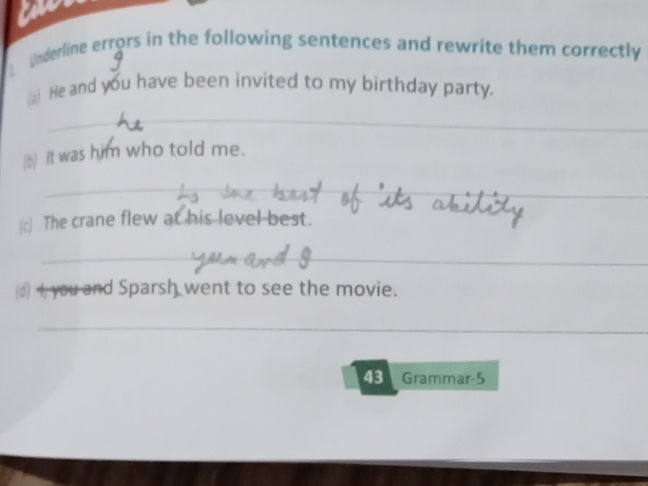 Underline errors in the following sentences and rewrite them correctly
g
(a) He and you have been invited to my birthday party.
he
(b) It was him who told me.
of its ability
(c) The crane flew at his level best.
and g
(d) I, you and Sparsh went to see the movie.
43 Grammar-5